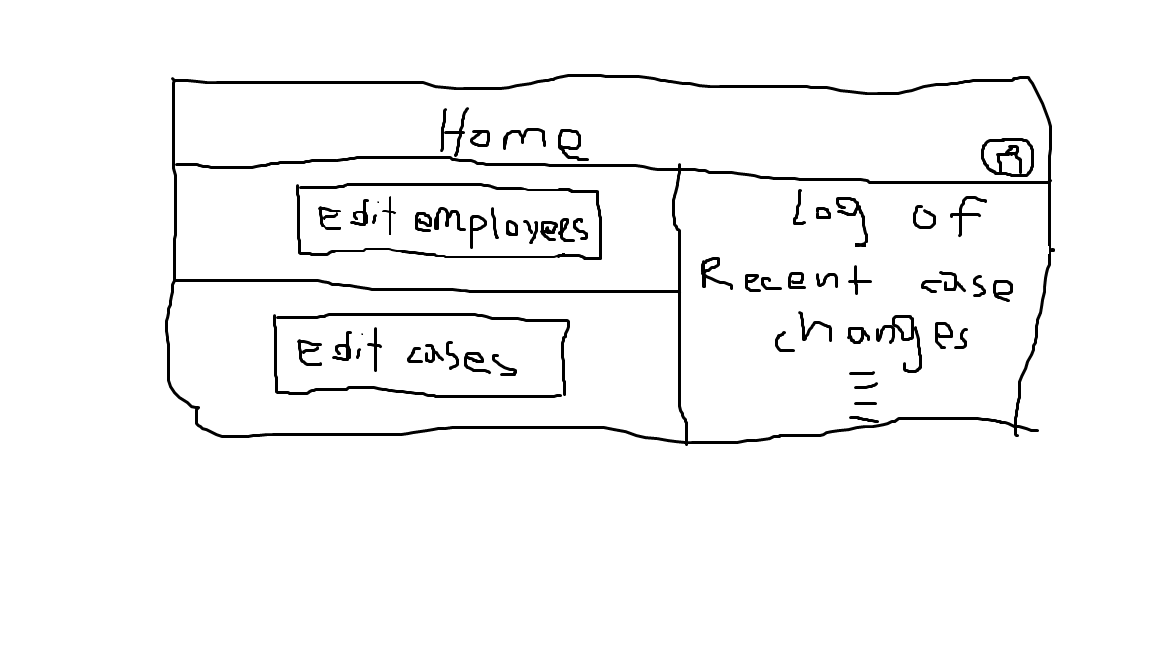 Home
Edit employees
Edit cases
Log of
Recent case
changes